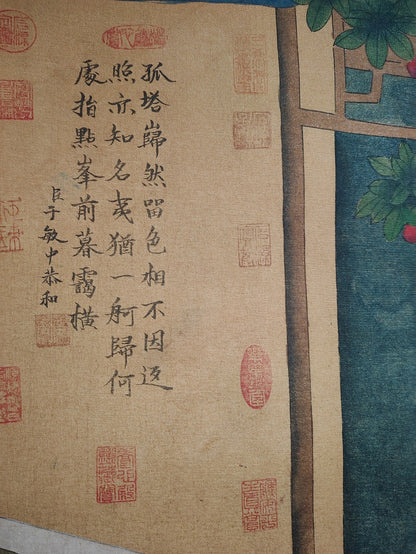 孤塔巋然留色相不因返
照亦知名夷猶一舸歸何
處指點峯前暮靄橫
臣于敏中恭和